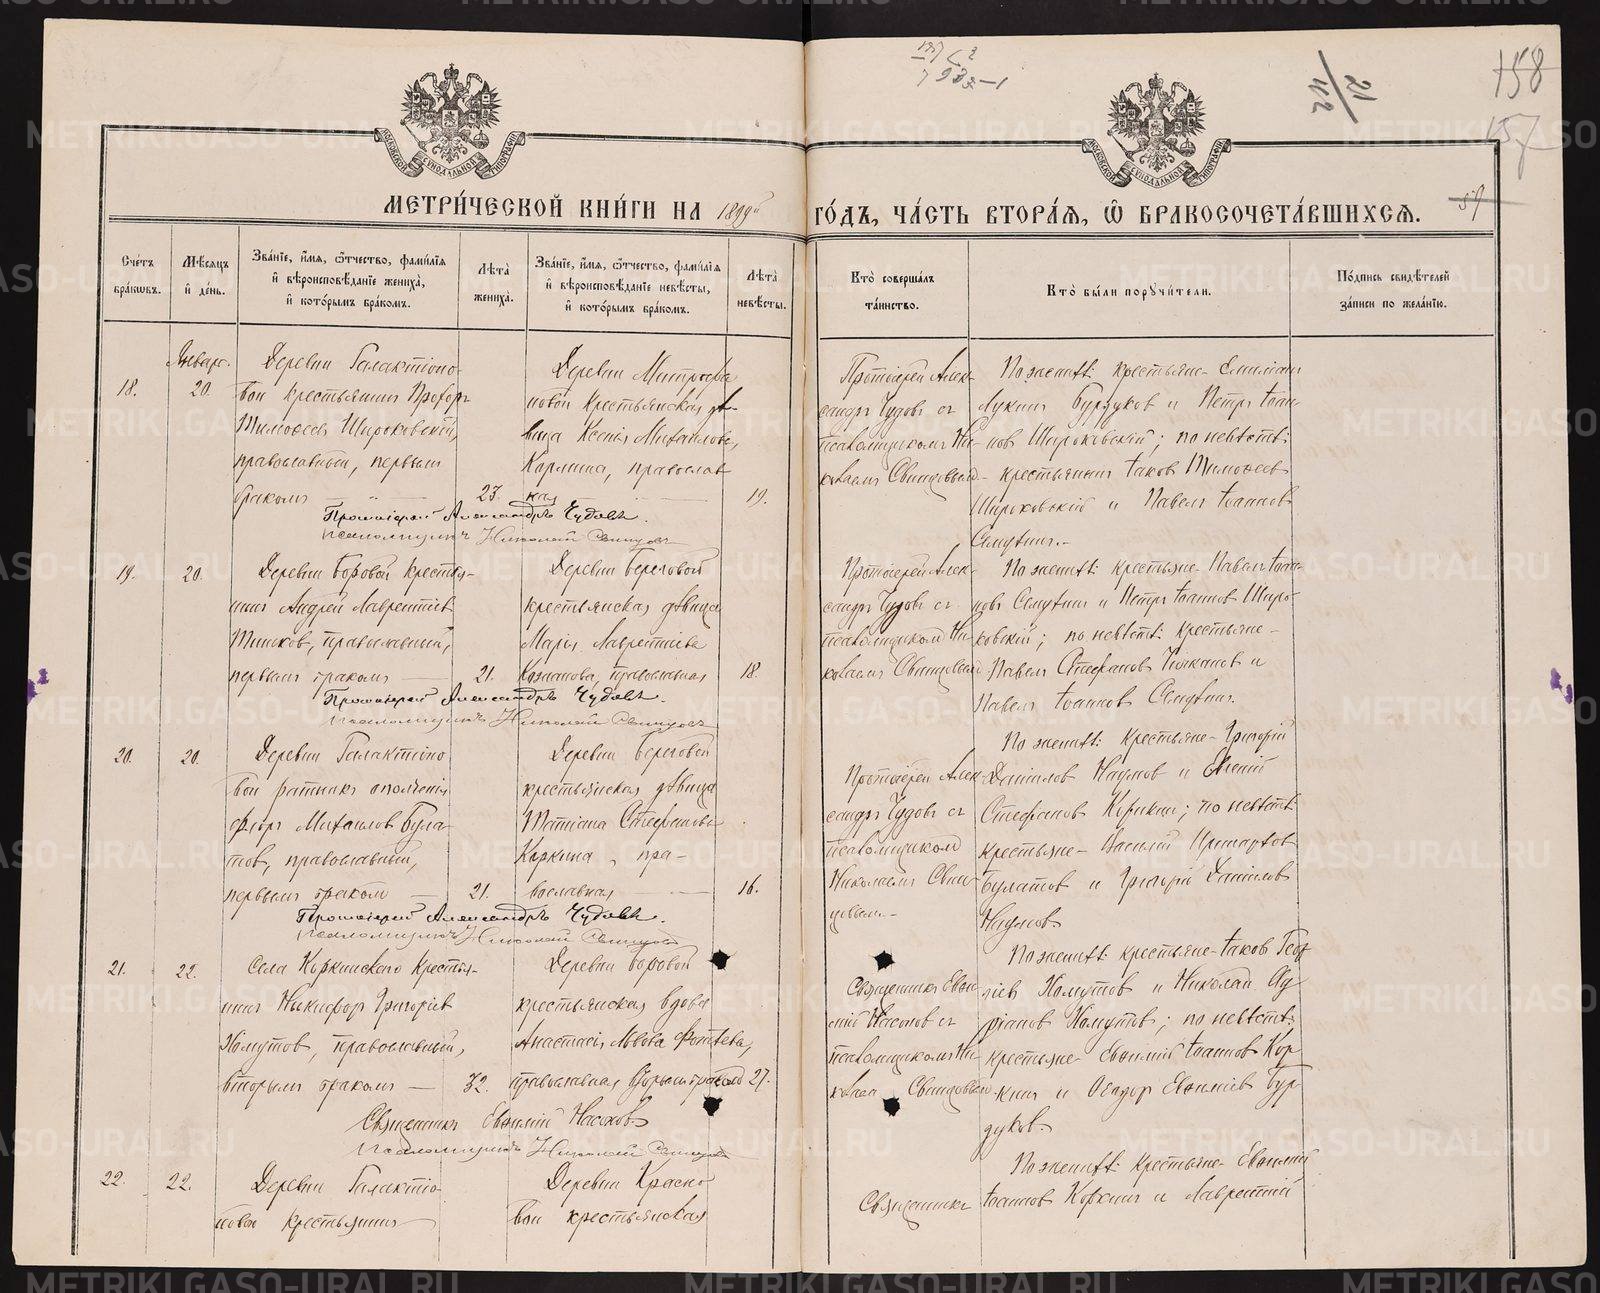 158
157
59
МЕТРИ́ЧЕСКОЙ КНИ́ГИ НА 1899й ГО́ДЪ, ЧА́СТЬ ВТОРА́Я, Ѿ БРАКОСОЧЕТА́ВШИХСЯ.
Сче́тъ бра́кѡвъ.
Мѣ́сяцъ и҆ де́нь.
Зва́нїе, и҆́мя, ѻ҆́тчество, фами́лїя
и҆ вѣроисповѣ́данїе жениха̀,
и҆ кото́рымъ бра́комъ.
Лѣ́та жениха̀.
Зва́нїе, и҆́мя, ѻ҆́тчество, фами́лїя
и҆ вѣроисповѣ́данїе невѣ́сты,
и҆ кото́рымъ бра́комъ.
Лѣ́та невѣ́сты.
Кто̀ соверша́лъ та́инство.
Кто̀ бы́ли порꙋчи́тели.
По́дпись свидѣ́телей за́писи по жела́нїю.
18.
Январь.
20.
Деревни Галактіоно-
вой крестьянинъ Прохоръ
Тимоѳеевъ Широковскій,
православный, первымъ
бракомъ
23.
Деревни Митрофа
новой крестьянская дѣ-
вица Ксенія Михаилова
Коркина, православ
ная
19.
Протоіерей Алек-
сандръ Чудовъ съ
псаломщикомъ Ни-
колаемъ Свинцовымъ
По женихѣ: крестьяне- Емиліанъ
Лукинъ Бурдуковъ и Петръ Іоан
новъ Широковскій; по невѣстѣ:
крестьянинъ Іаковъ Тимоѳеевъ
Широковскій и Павелъ Іоанновъ
Протоіерей Александръ Чудовъ.
псаломщикъ Николай Свинцовъ
19.
20.
Деревни Боровой крестья-
нинъ Андрей Лаврентіевъ
православный,
первымъ бракомъ
21.
Деревни Береговой
крестьянская дѣвица
Марія Лаврентіева
православная
18.
Протоіерей Алек-
сандръ Чудовъ съ
псаломщикомъ Ни-
колаемъ Свинцовымъ
По женихѣ: крестьяне- Павелъ Іоан-
новъ и Петръ Іоанновъ Широ-
ковскій; по невѣстѣ: крестьяне-
Павелъ Стефановъ и
Павелъ Іоанновъ
Протоіерей Александръ Чудовъ.
псаломщикъ Николай Свинцовъ
20.
20.
Деревни Галактіоно
вой ратникъ ополченія
Ѳеодоръ Михаиловъ Була-
товъ, православный,
первымъ бракомъ
21.
Деревни Береговой
крестьянская дѣвица
Татіана Стефанова
Коркина, пра-
вославная
16.
Протоіерей Алек-
сандръ Чудовъ съ
псаломщикомъ
Николаемъ Свин-
цовымъ-
По женихѣ: крестьяне- Григорій
Даніиловъ Наумовъ и Евгеній
Стефановъ Коркинъ; по невѣстѣ:
крестьяне- Василій
Булатовъ и Григорій Даніиловъ
Наумовъ.
Протоіерей Александръ Чудовъ.
псаломщикъ Николай Свинцовъ
21.
22.
Села Коркинскаго крестья-
нинъ Никифоръ Григоріевъ
Хомутовъ, православный,
вторымъ бракомъ
32.
Деревни Боровой
крестьянская вдова
Анастасія Львова Фотѣева,
православная вторымъ бракомъ
27.
Священникъ Евѳи
мій Насоновъ съ
псаломщикомъ Ни-
колаемъ Свинцовымъ
По женихѣ: крестьяне- Іаковъ Геор
гіевъ Хомутовъ и Николай Ад
ріановъ Хомутовъ; по невѣстѣ:
крестьяне- Евѳимій Іоанновъ Кор
кинъ и Ѳеодоръ Евѳиміевъ Бур-
дуковъ.
Священникъ Евѳимій Насоновъ
псаломщикъ Николай Свинцовъ
22.
22.
Деревни Галактіо
новой крестьянинъ
Деревни Красно
вой крестьянская
Священникъ
По женихѣ: крестьяне- Евѳимій
Іоанновъ Коркинъ и Лаврентій